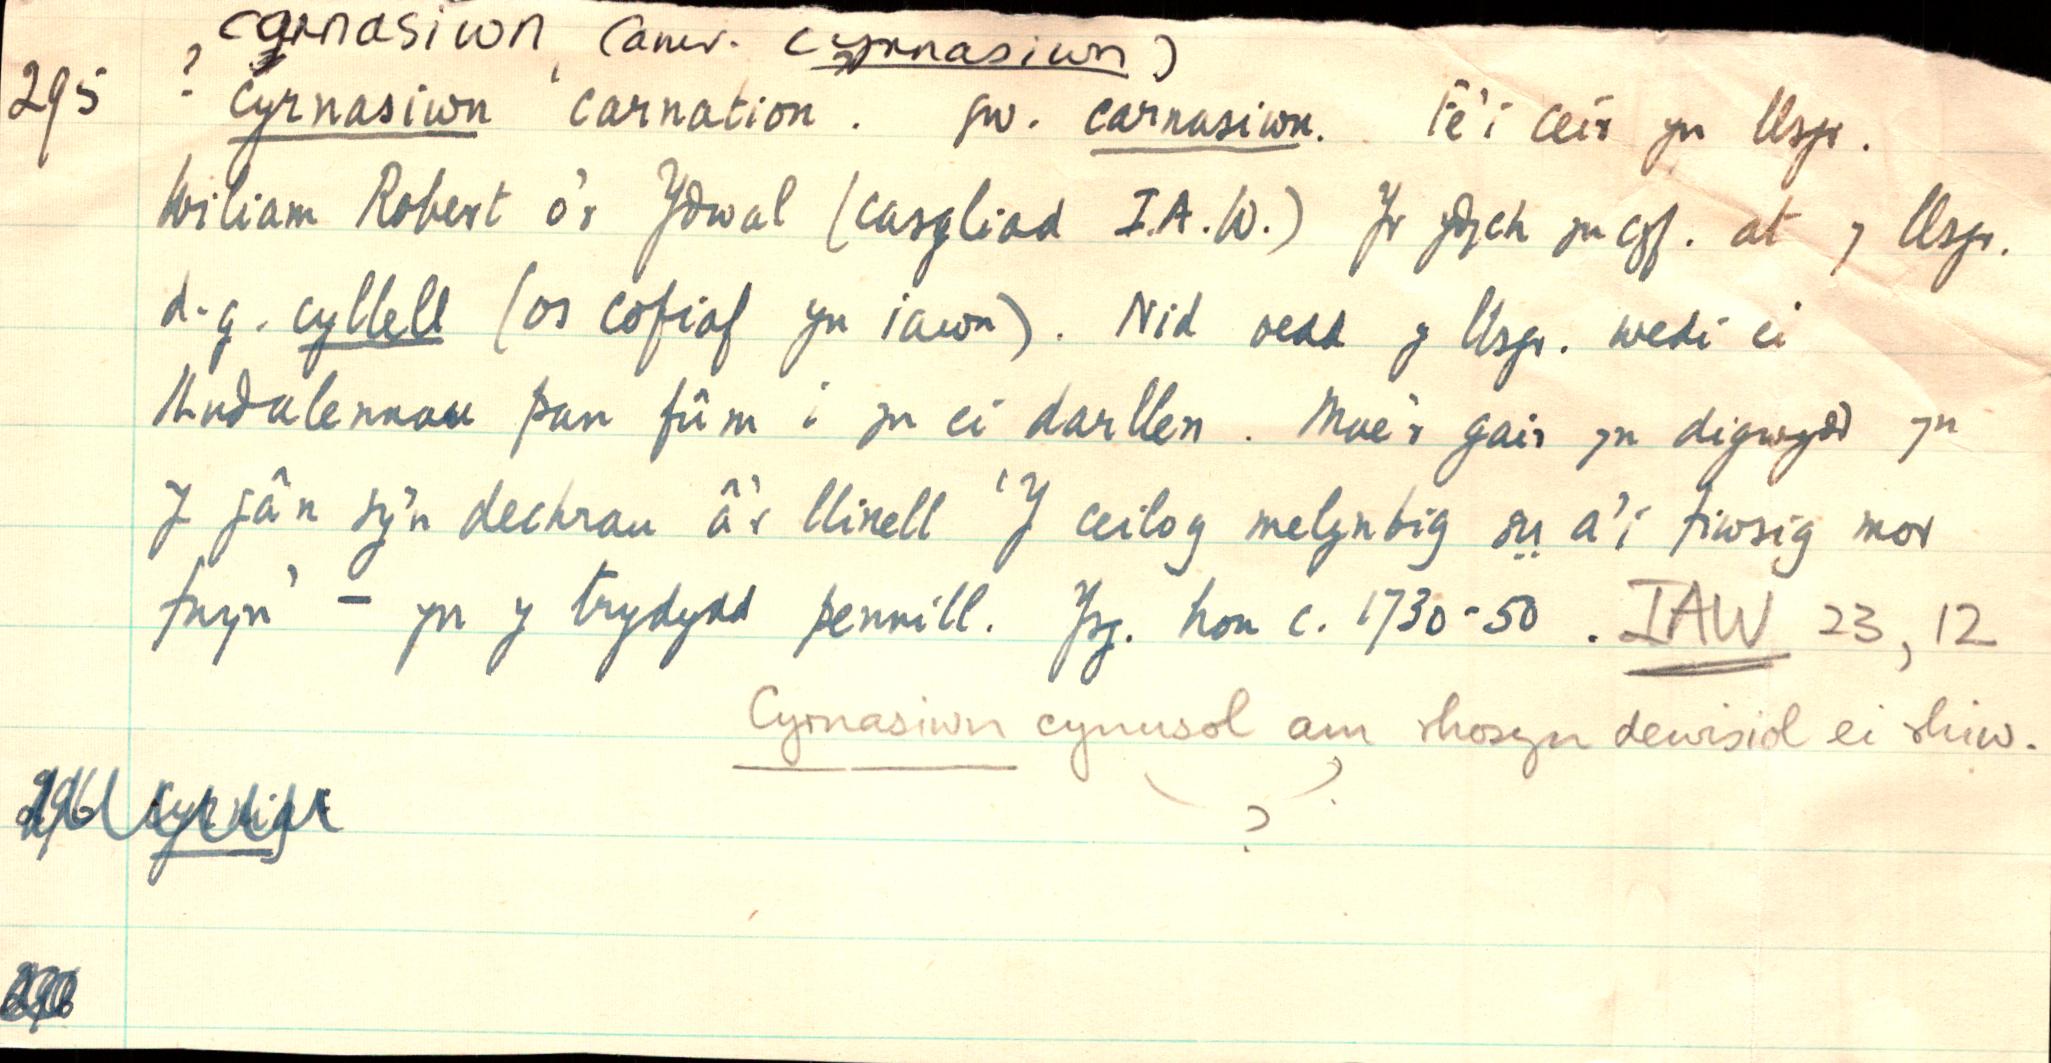 carnasiwn, (amr. cyrnasiwn)
295 ? cyrnasiwn 'carnation. gw. carnasiwn. Fe'i ceir yn llsgr.
Wiliam Robert o'r Ydwal (casgliad I.A.W.) Yr ydych yn cyf. at y llsgr.
d.g. cyllell (os cofiaf yn iawn). Nid oedd y llsgr. wedi ei
thudalennau pan fûm i yn ei darllen. Mae'r gair yn digwydd yn
y gân sy'n dechrau â'r llinell 'Y ceilog melynbig su a'i fiwsig mor
fwyn' - yn y trydydd pennill. Ysg. hon c. 1730-50. IAW 23, 12
Cyrnasiwn cynusol am rhosyn dewisid ei rhiw.
?